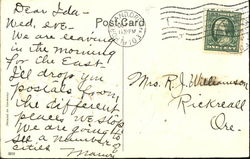 Dear Ida-
Wed, eve-
Post Card
We are leaving
in the morning
for the East.
I'll drop you
postals from
the different
places we stop
We are going to
see a number of
cities
Mrs. R. J. Williamson,
Rickreall
Ore.